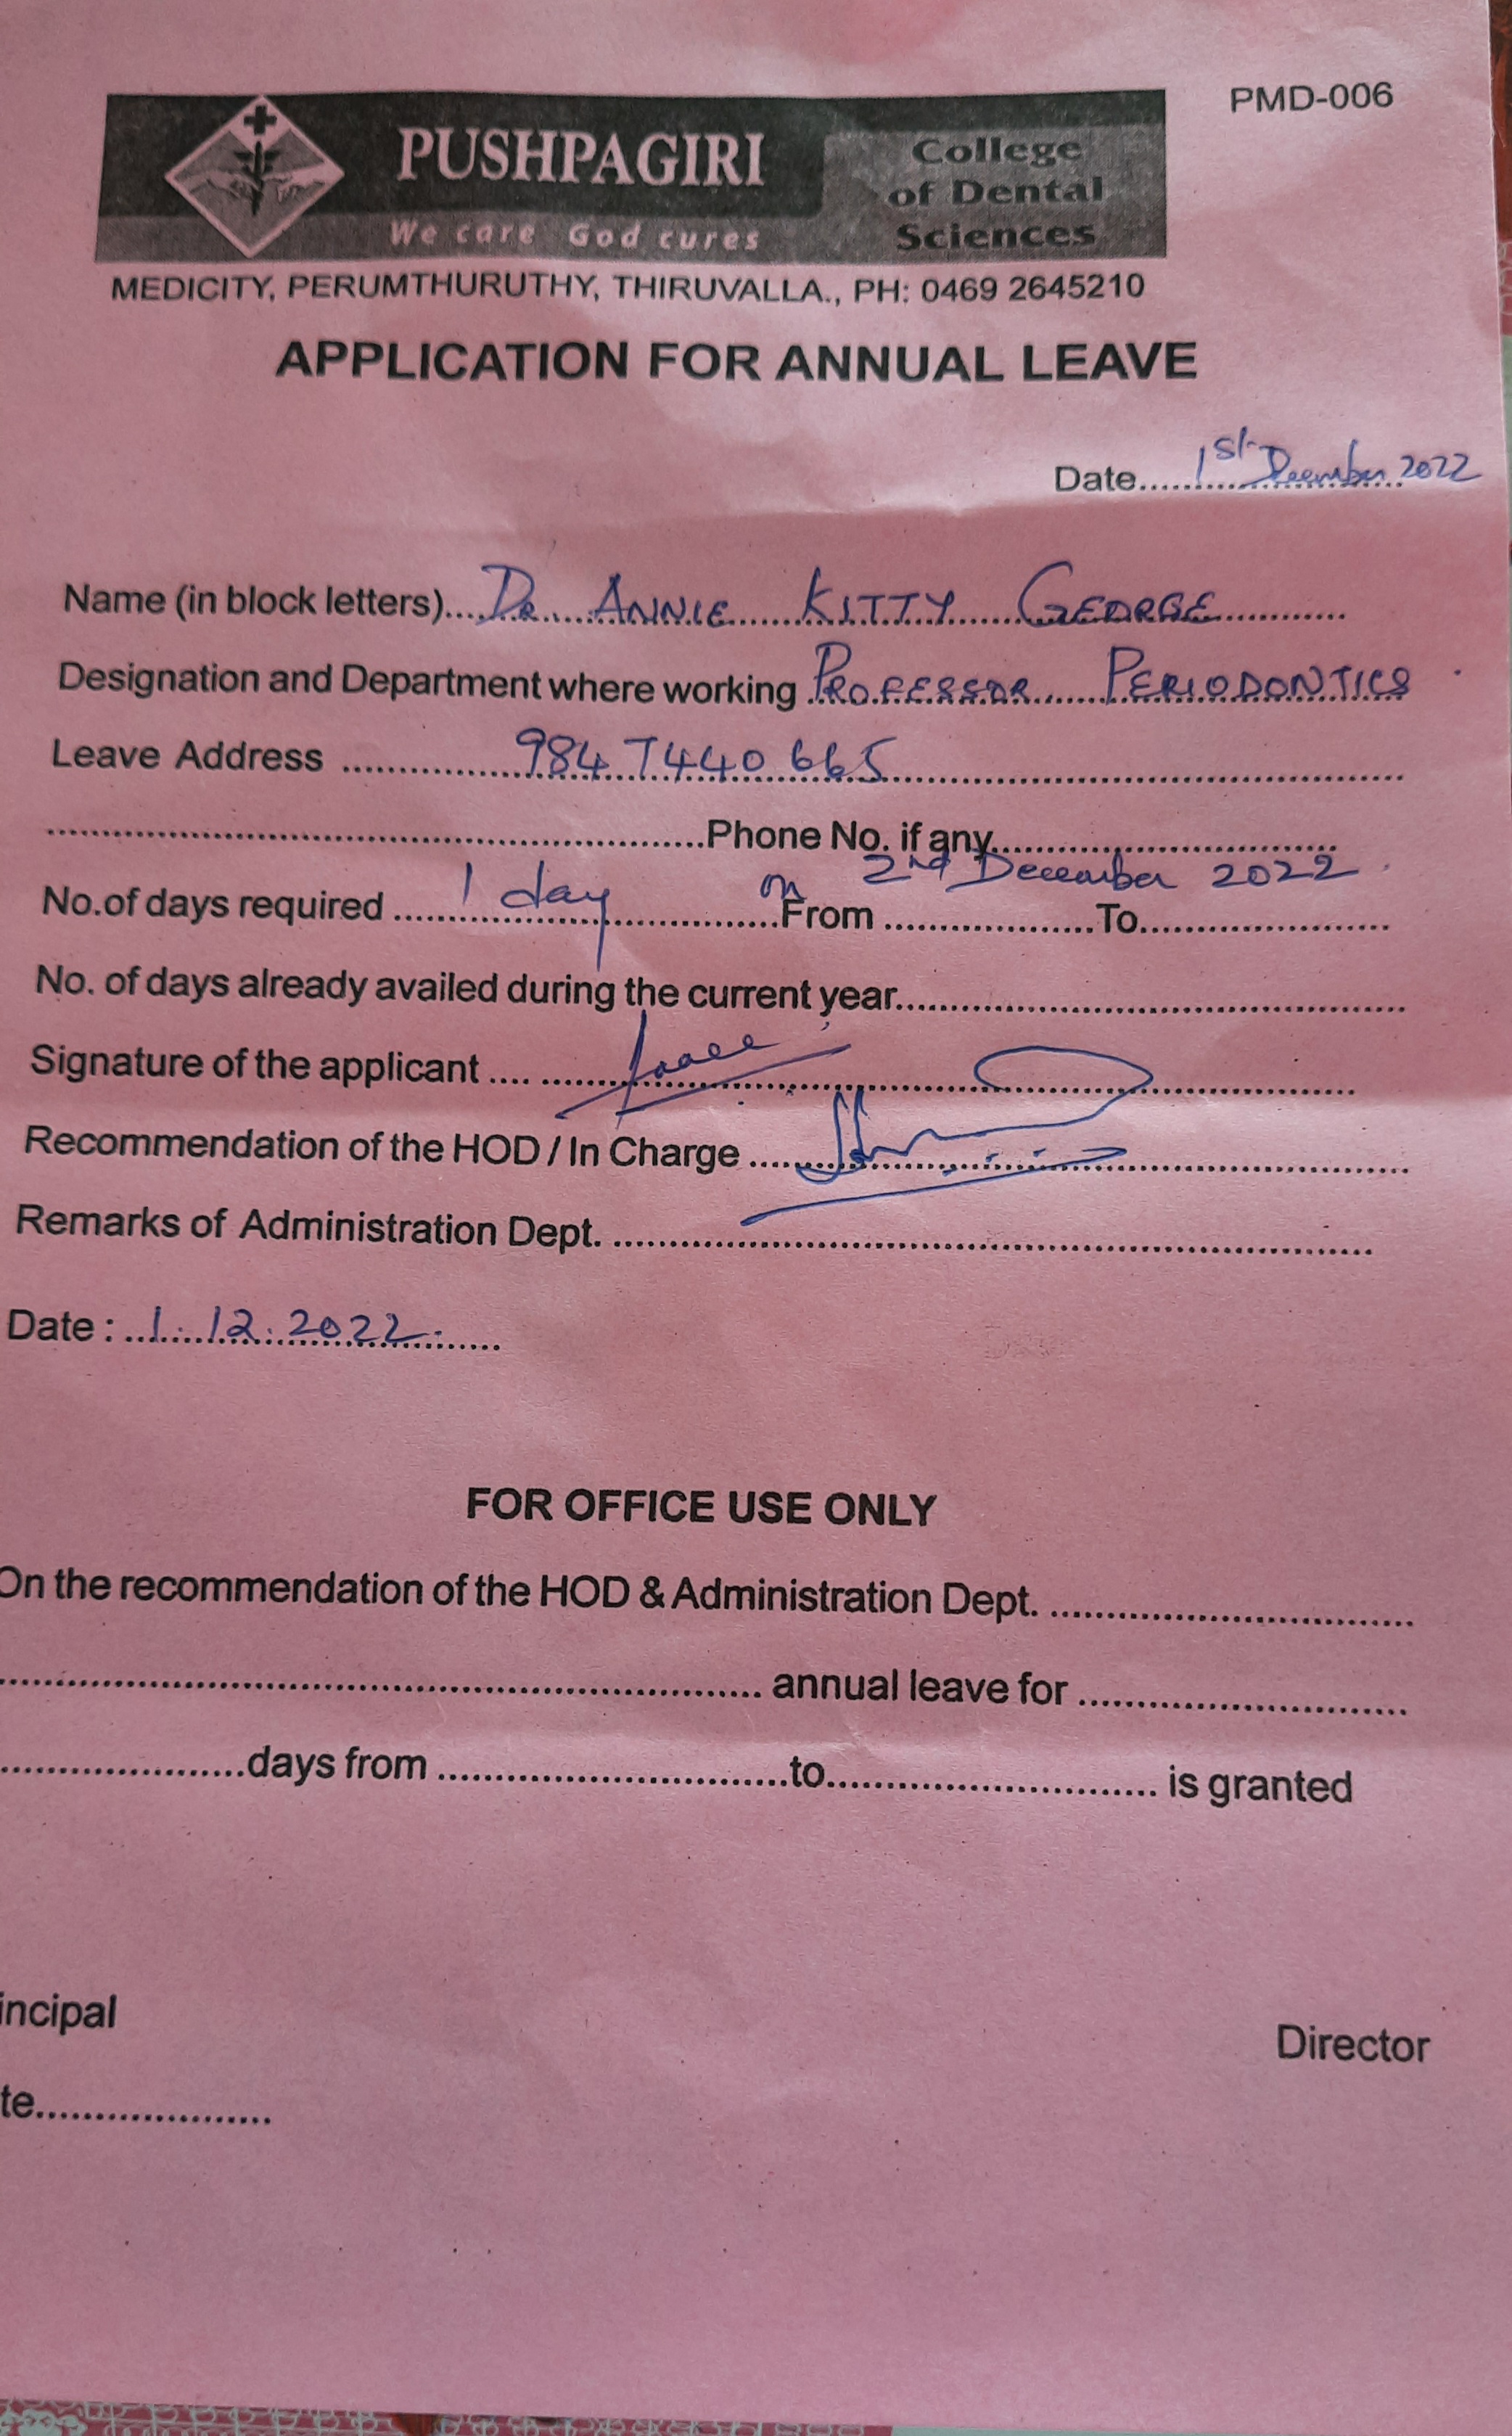 PMD-006
PUSHPAGIRI
We care God cures
College
of Dental
Sciences
MEDICITY, PERUMTHURUTHY, THIRUVALLA., PH: 0469 2645210
APPLICATION FOR ANNUAL LEAVE
Date......1st December 2022
Name (in block letters)....DR ANNIE KITTY GEORGE
Designation and Department where working PROFESSOR PERIODONTICS
Leave Address ............... 9847440665
Phone No. if any
on 2nd December 2022
No.of days required ...... 1 day ......From ......To......
No. of days already availed during the current year......
Signature of the applicant ....
Recommendation of the HOD / In Charge ....
Remarks of Administration Dept. ......
Date : ..1.12.2022.
FOR OFFICE USE ONLY
On the recommendation of the HOD & Administration Dept. ......
...... annual leave for ......
......days from ......to...... is granted
incipal
Director
te......